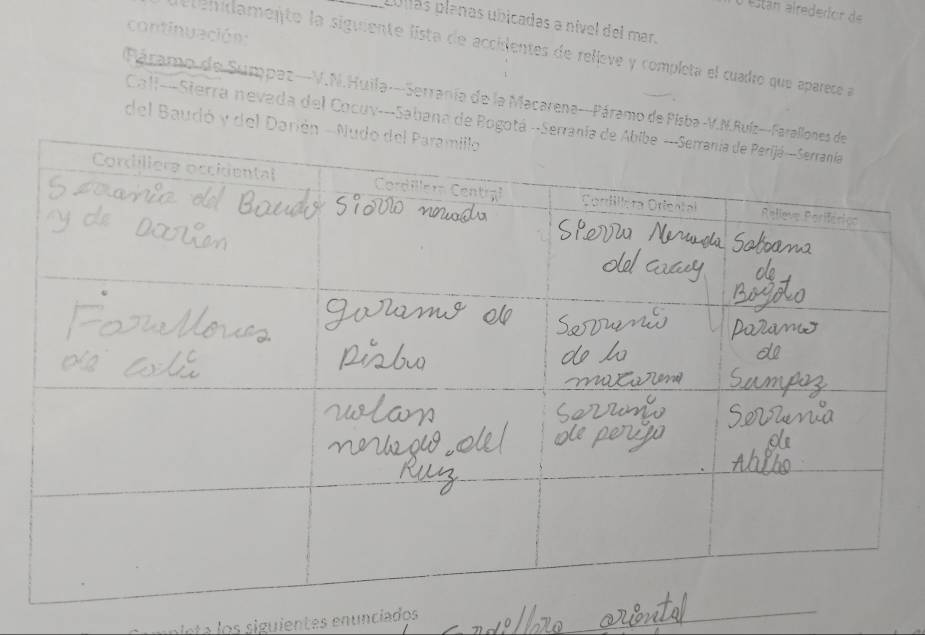 zonas planas ubicadas a nivel del mar.
están alrededor de
detenidamente la siguiente lista de accidentes de relieve y completa el cuadro que aparece a
continuación:
Páramo de Sumpaz---V.N.Huila---Serranía de la Macarena---Páramo de Pisba -V.N.Ruíz---Farallones de
Cali---Sierra nevada del Cocuy---Sabana de Bogotá --Serranía de Abibe ---Serranía de Perijá---Serranía
del Baudó y del Darién --Nudo del Paramillo
Cordillera occidental
Cordillera Central
Cordillera Oriental
Relieve Periférico
del Baudo
y de Darien
Sierra Nevada
del cacuy
Sabana
de
Bogota
de cali
de
Pisba
Serrania
de la
macarena
Paramo
de
Sumpaz
del
Ruiz
de perija
Serrania
de
Abibe
los siguientes enunciados
oriental